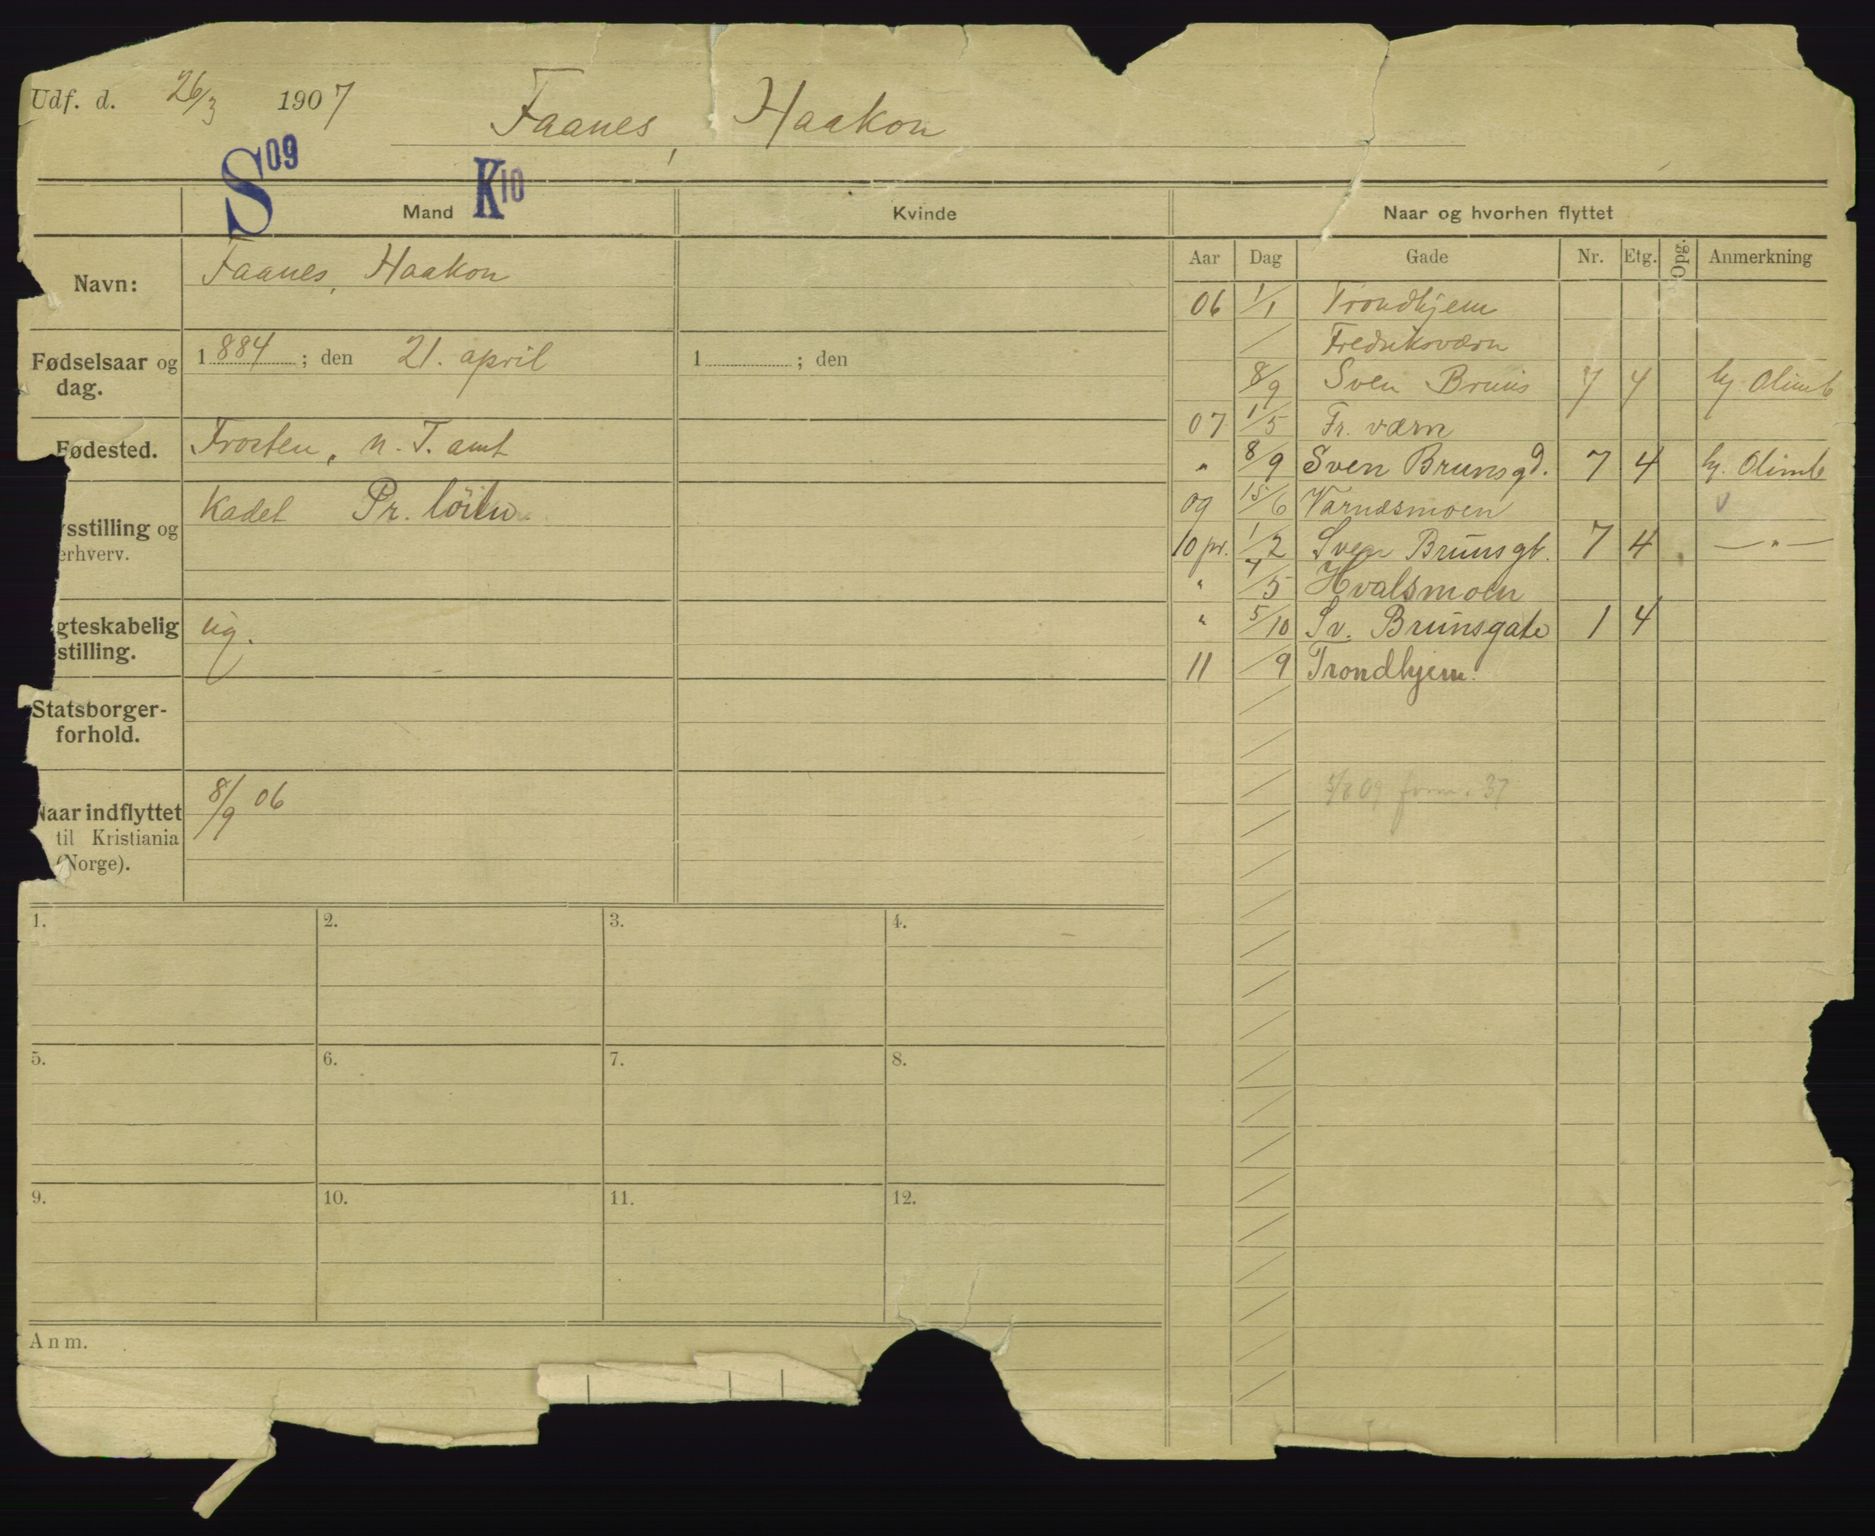 Udf. d. 26/3 1907
Faanes, Haakon
S 09 K 10
Mand Kvinde Naar og hvorhen flyttet
Aar Dag Gade Nr. Etg. Opg. Anmerkning
Navn: Faanes, Haakon
Fødselsaar og dag. 1884; den 21. april 1 ; den
Fødested. Frosten, n. T. amt
sstilling og
erhverv. Kadet Pr. løitn.
gteskabelig
stilling. ug.
Statsborger-
forhold.
Naar indflyttet
til Kristiania
(Norge). 8/9 06
06 1/1 Trondhjem
/ Fredriksværn
8/9 Sven Bruns 7 4 hj. Olimb
07 1/5 Fr. værn
" 8/9 Sven Brunsgd. 7 4 hj. Olimb
09 15/6 Værnesmoen v
10 pr. 1/2 Sven Brunsgt. 7 4 — " —
" 7/5 Hvalsmoen
" 5/10 Sv. Brunsgate 1 4
11 /9 Trondhjem.
09 37
1. 2. 3. 4.
5. 6. 7. 8.
9. 10. 11. 12.
Anm.